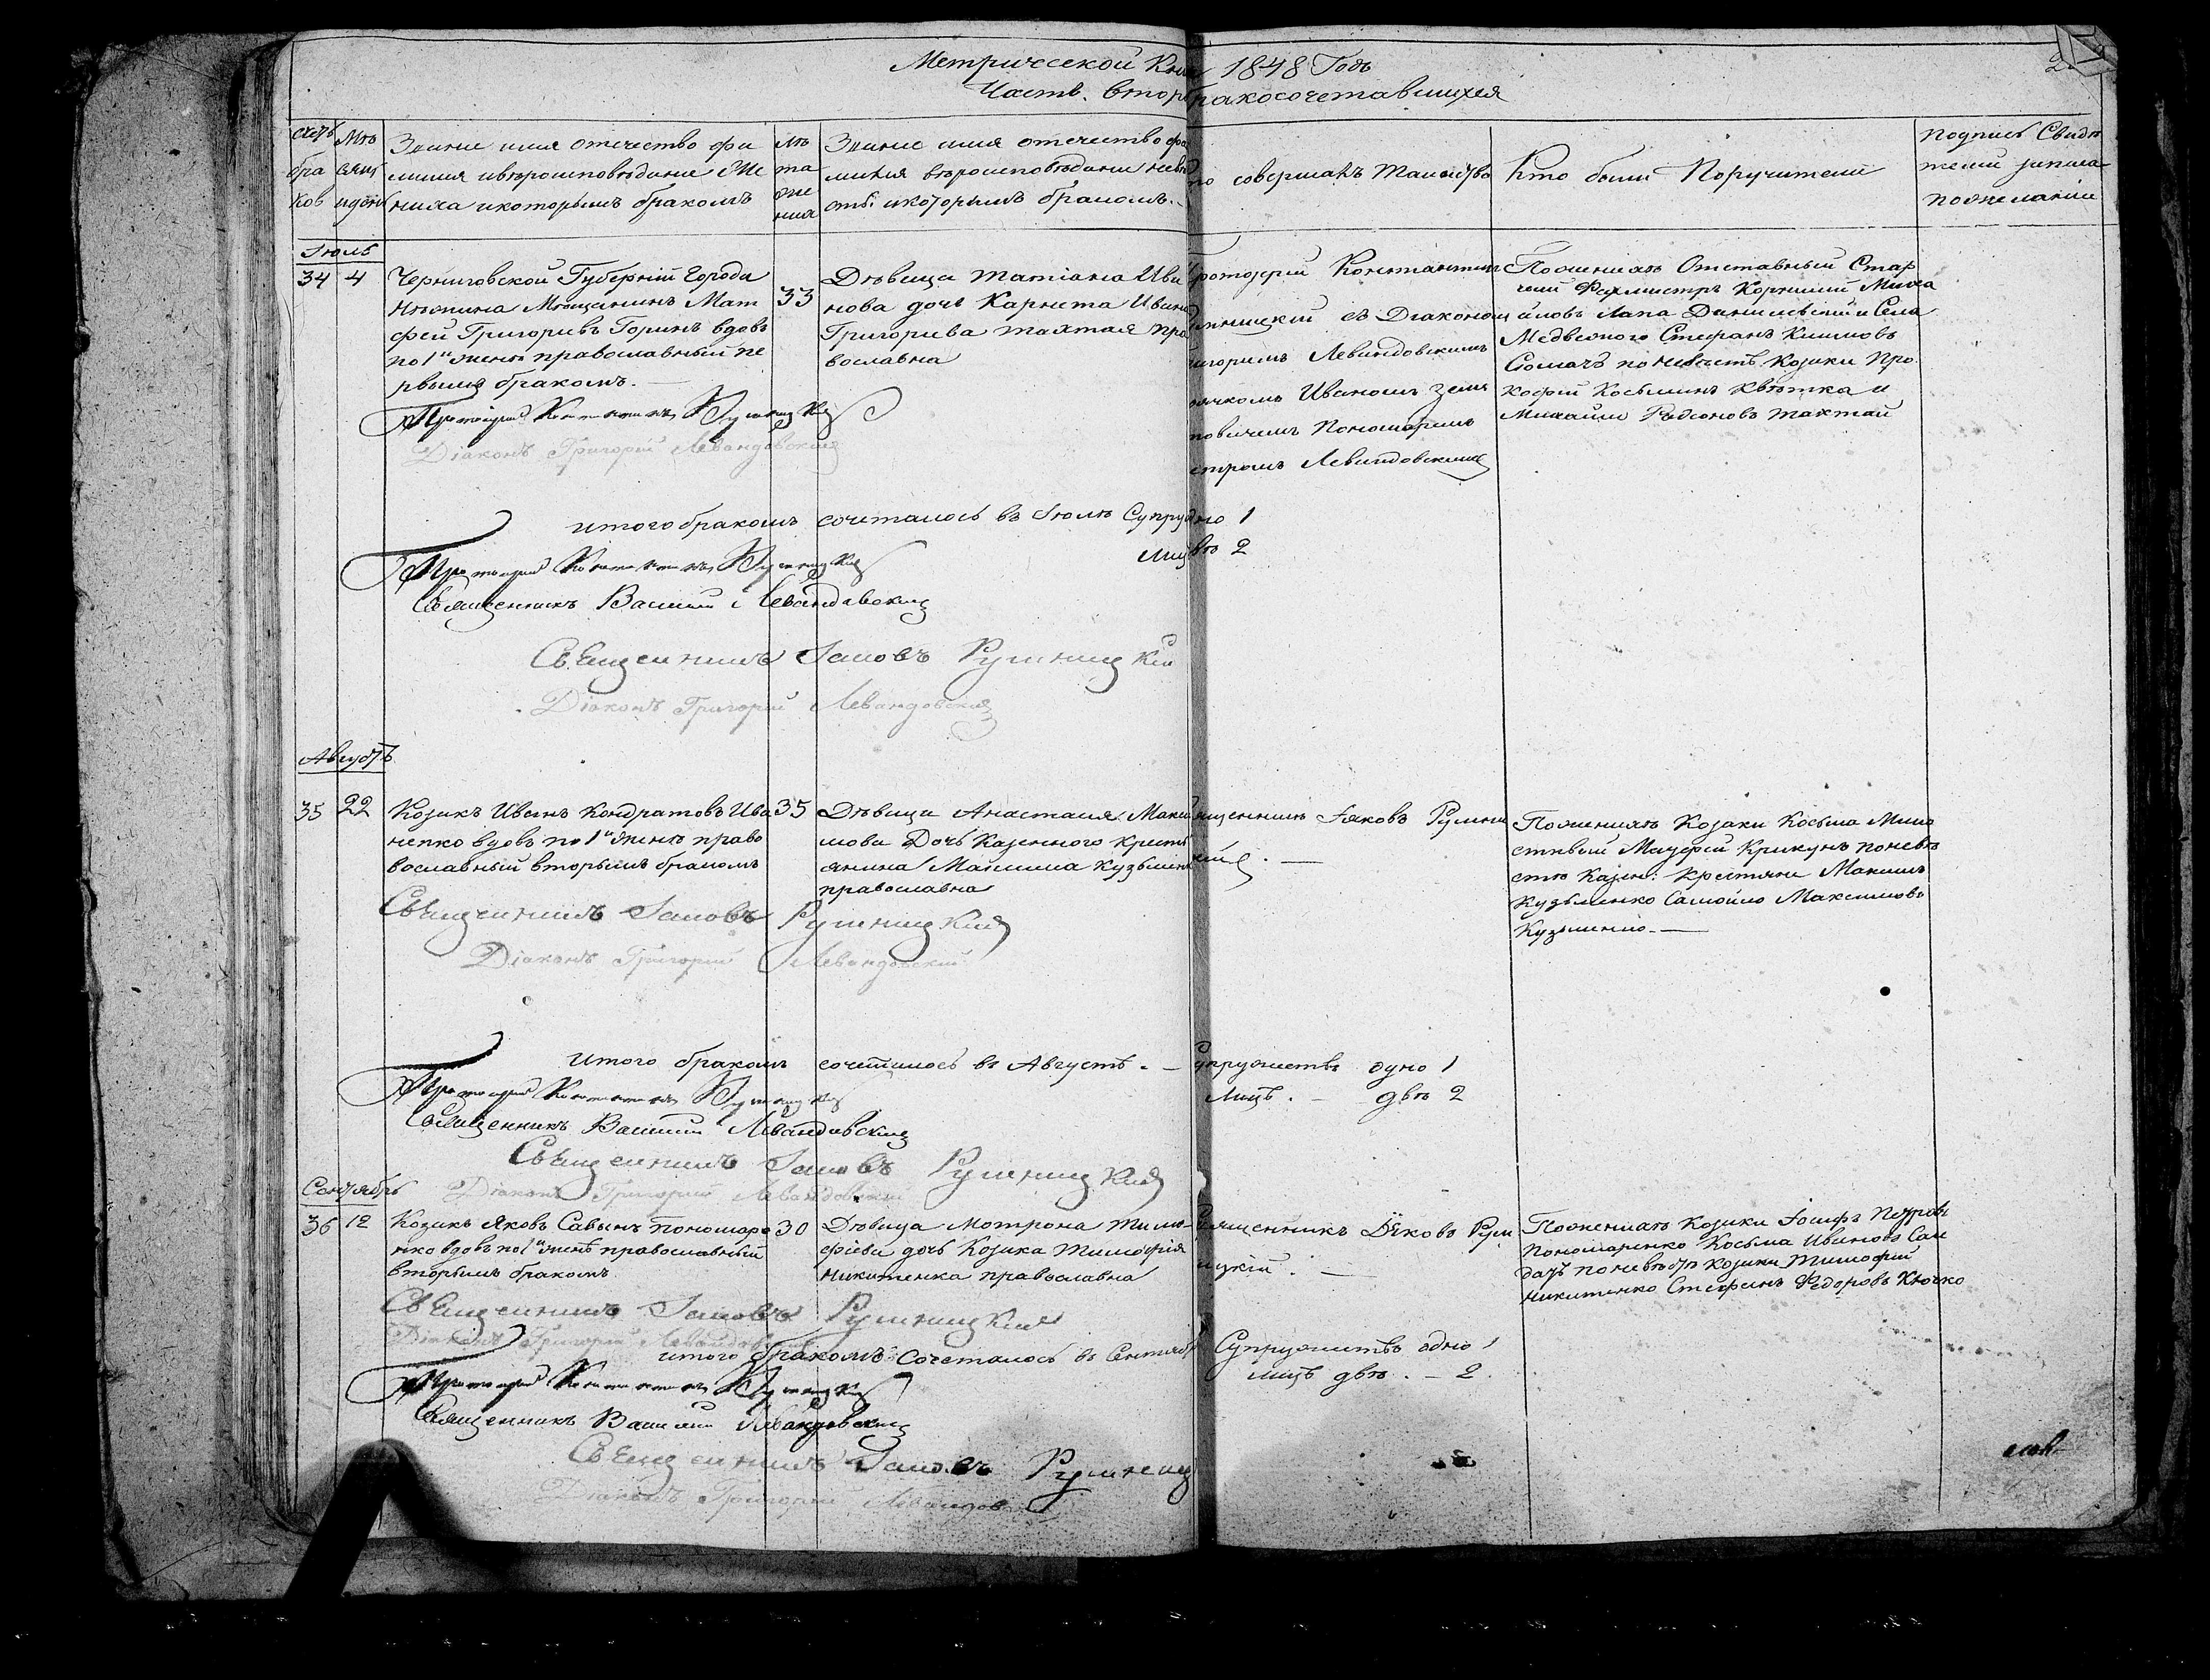 Метрической Кни 1848 Годъ
Часть втор бракосочетавшихся
счетъ бра ков
Мѣ сяцъ и день
Званіе имя отечество фа
милія ивѣроисповѣданіе Же
ниха икоторымъ бракомъ
лѣ та же ниха
Званіе имя отечество фа
милия вѣроисповѣдание невѣ
сты икоторымъ бракомъ.
то совершалъ Таинство
Кто были Поручители
подпись Свидѣ
телей записа
пожеланiи
Июль
34 4
Черниговской Губерніи Города
Нѣжина Мѣщанинъ Мат
фей Григориевъ Горинъ вдовъ
по 1й женѣ православный пе
рвымъ бракомъ.
33
Дѣвица Татіана Ива
нова дочь Карнета Ивана
Григориева Тахтая пра
вославна
ротоіерій Константинъ
съ Диакономъ
ригоримъ Левандовскимъ
ячкомъ Иваномъ Зень
повичемъ Пономаримъ
етромъ Левандовскимъ
Поженихѣ Отставный Стар
шій Вахмистръ Корнилій Миха
йловъ Лапа Данилевскій и Села
Медвежого Стефанъ Климовъ
Сомачъ поневѣстѣ Козаки Про
кофій Косьминъ Квѣтка и
Михаилъ Родіоновъ Тахтай
Протоіерей Константинъ
Діаконъ Григорій Левандовскій
итого бракомъ сочеталось въ Июлѣ Супру дно 1
Лиц двѣ 2
Протоіерей Константинъ
Священникъ Василій Левандовскій
Священникъ Іаковъ Рушницкій
Діаконъ Григорій Левандовскій
Августъ
35 22
Козакъ Иванъ Кондратовъ Ива
ненко вдовъ по 1й женѣ право
вославный вторымъ бракомъ
35
Дѣвица Анастасия Макси
мова Дочь Казенного Крестъ
янина Максима Кузьменк
православна
щенникъ Іяковъ Рушни
кій
Поженихѣ Козаки Косьма Мило
стивый Матфей Крикунъ поневѣ
стѣ Казен: Крестяне Максимъ
Кузьменко Самойло Максимовъ
Кузьменко
Священникъ Іаковъ Рушницкій
Діаконъ Григорій Левандовскій
Итого бракомъ сочеталось въ Августѣ. — упружествъ одно 1
Лицъ. — двѣ 2
Протоіерей Константинъ
Священникъ Василій Левандовскій
Священникъ Іаковъ Рушницкій
Діаконъ Григорій Левандовскій
Сентябрь
36 12
Козакъ Яковъ Савинъ Пономаре
нко вдовъ по 1й женѣ православный
вторымъ бракомъ
30
Дѣвица Мотрона Тимо-
фіева дочь Козака Тимофія
Никитенка православна
вященникъ Іяковъ Руш
ницкій. —
Поженихѣ Козаки Іосифъ Петровъ
Пономаренко Косьма Ивановъ Сам
дачъ поневѣстѣ Козаки Тимофій
Никитенко Стефанъ Федоровъ Ключко
Священникъ Іаковъ Рушницкій
Діаконъ Григорій Левандовскій
итого бракомъ Сочеталось въ Сентяб Супружествъ одно 1
лицъ двѣ. — 2.
Протоіерей Константинъ
Священникъ Василій Левандовскій
Священникъ Іаковъ Рушниц
Діаконъ Григорій Левандов